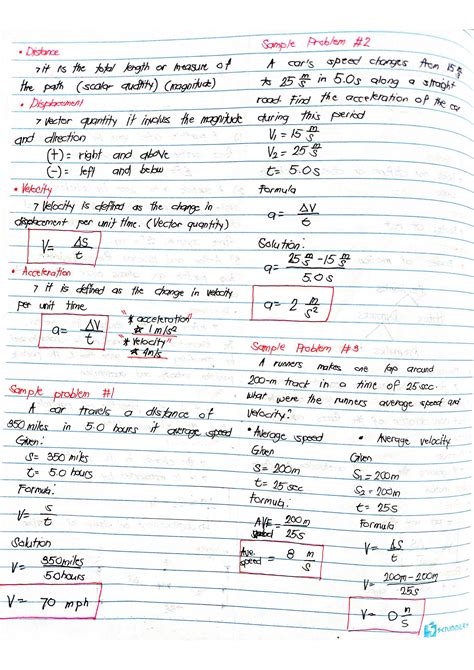 • Distance
→ it is the total length or measure of
the path (scalar quality) (magnitude)
• Displacement
→ vector quantity it involves the magnitude
and direction
(+) = right and above
(-) = left and below
• Velocity
→ Velocity is defined as the change in
displacement per unit time. (Vector quantity)
V = ΔS/t
• Acceleration
→ it is defined as the change in velocity
per unit time
a = ΔV/t
"* acceleration"
* 1 m/s²
"* Velocity"
* 4m/s
Sample problem #1
A car travels a distance of
350 miles in 5.0 hours it average speed
Given:
S = 350 miles
t = 5.0 hours
Formula:
V = s/t
Solution
V = 350miles/5.0hours
V = 70 mph
Sample Problem #2
A car's speed changes from 15 m/s
to 25 m/s in 5.0s along a straight
road. Find the acceleration of the car
during this period
V₁ = 15 m/s
V₂ = 25 m/s
t = 5.0s
Formula
a = ΔV/t
Solution:
a = 25 m/s - 15 m/s / 5.0s
a = 2 m/s²
Sample Problem #3
A runners makes one lap around
200-m track in a time of 25 sec.
what were the runners average speed and
velocity?
• Average speed
Given
S = 200m
t = 25 sec
formula:
AVE speed = 200m/25s
Ave. speed = 8 m/s
• Average velocity
Given
S₁ = 200m
S₂ = 200m
t = 25s
Formula
V = ΔS/t
V = 200m - 200m / 25s
V = 0 m/s